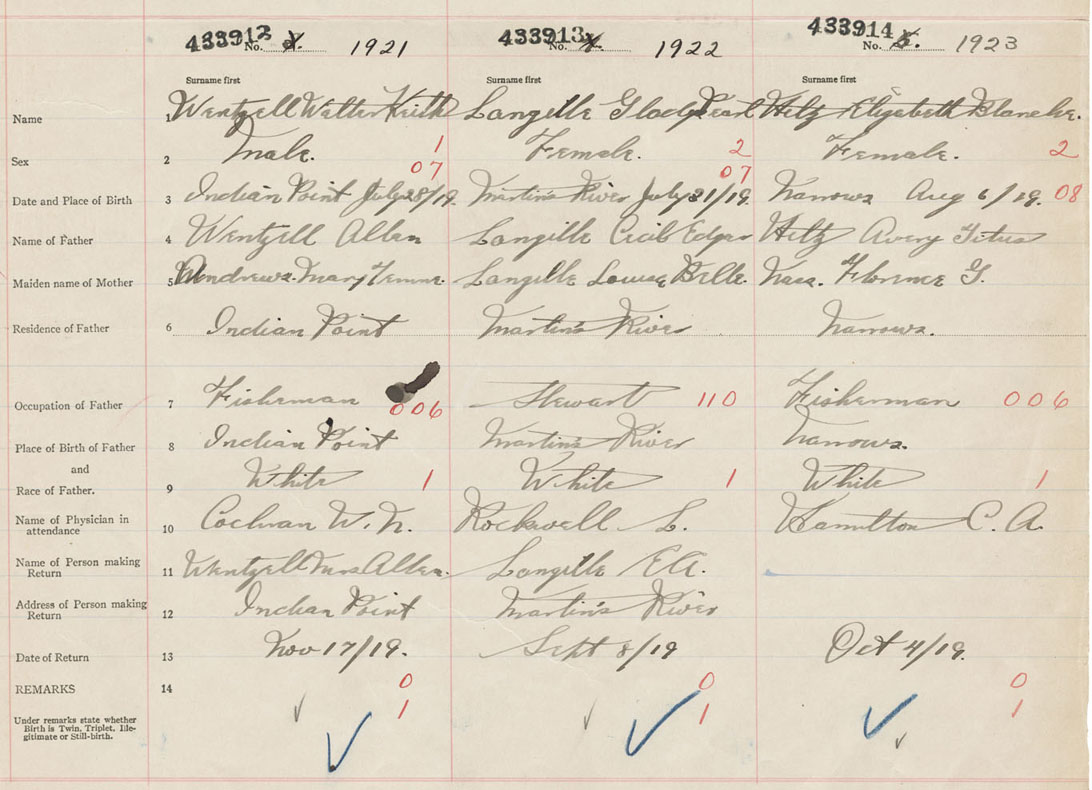 433912 433913 433914
No. 3. 1921 No. 4. 1922 No. 5. 1923
Surname first Surname first Surname first
Name 1 Wentzell Walter Keith Langille Gladys Pearl Hiltz Elizabeth Blanche.
Sex 2 Male. 1 Female. 2 Female. 2
07 07
Date and Place of Birth 3 Indian Point July 28/19. Martin's River July 31/19. Narrows Aug 6/19. 08
Name of Father 4 Wentzell Allen Langille Cecil Edgar Hiltz Avery Titus
Maiden name of Mother 5 Andrews. Mary Langille Louise Belle. Naas. Florence G.
Residence of Father 6 Indian Point Martin's River Narrows.
Occupation of Father 7 Fisherman 006 Stewart 110 Fisherman 006
Place of Birth of Father 8 Indian Point Martin's River Narrows.
and
Race of Father. 9 White 1 White 1 White 1
Name of Physician in
attendance 10 Cochran W. N. Rockwell L. Hamilton C. A.
Name of Person making
Return 11 Wentzell Mrs Allen. Langille E.A.
Address of Person making
Return 12 Indian Point Martin's River
Date of Return 13 Nov 17/19. Sept 8/19 Oct 4/19.
REMARKS 14 0 0 0
1 1 1
Under remarks state whether
Birth is Twin, Triplet, Ille-
gitimate or Still-birth.